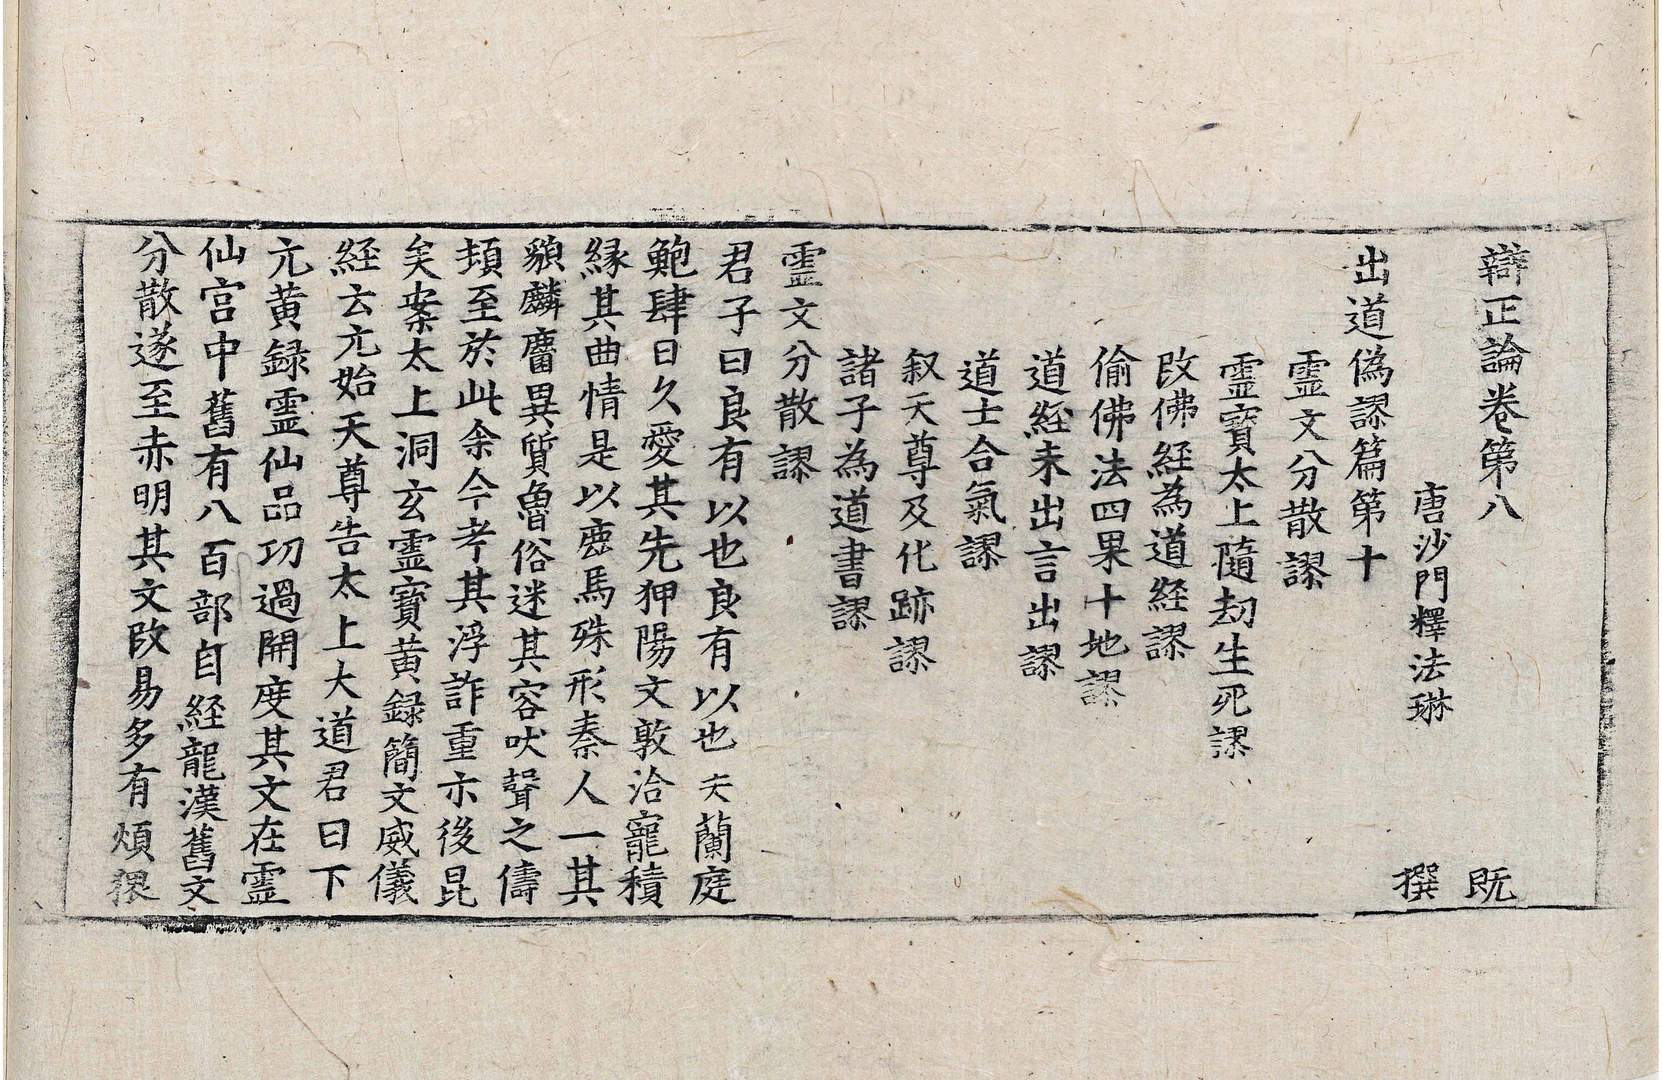 辯正論卷第八 既
唐沙門釋法琳 撰
出道偽謬篇第十
霊文分散謬
霊寶太上隨劫生死謬
改佛経為道経謬
偷佛法四果十地謬
道経未出言出謬
道士合氣謬
叙天尊及化跡謬
諸子為道書謬
霊文分散謬
君子曰良有以也良有以也夫蘭庭
鮑肆日久愛其先狎陽文敦洽寵積
縁其曲情是以鹿馬殊形秦人一其
貌麟麏異質魯俗迷其容吠聲之儔
類至於此余今考其浮詐重示後昆
矣案太上洞玄霊寶黄録簡文威儀
経云元始天尊告太上大道君曰下
元黄録霊仙品功過開度其文在霊
仙宫中舊有八百部自経龍漢舊文
分散遂至赤明其文改易多有煩猥